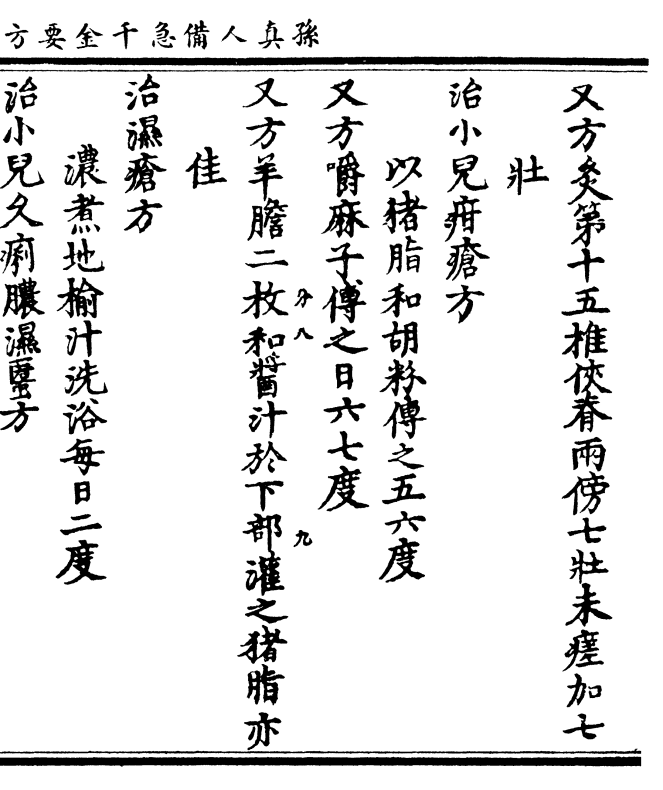 孫真人備急千金要方
又方灸第十五椎俠脊兩傍七壯未瘥加七
壯
治小兒疳瘡方
以猪脂和胡粉傅之五六度
又方嚼麻子傅之日六七度
又方羊膽二枚和醬汁於下部灌之猪脂亦
分八
九
佳
治濕瘡方
濃煮地榆汁洗浴每日二度
治小兒久痢膿濕䘌方